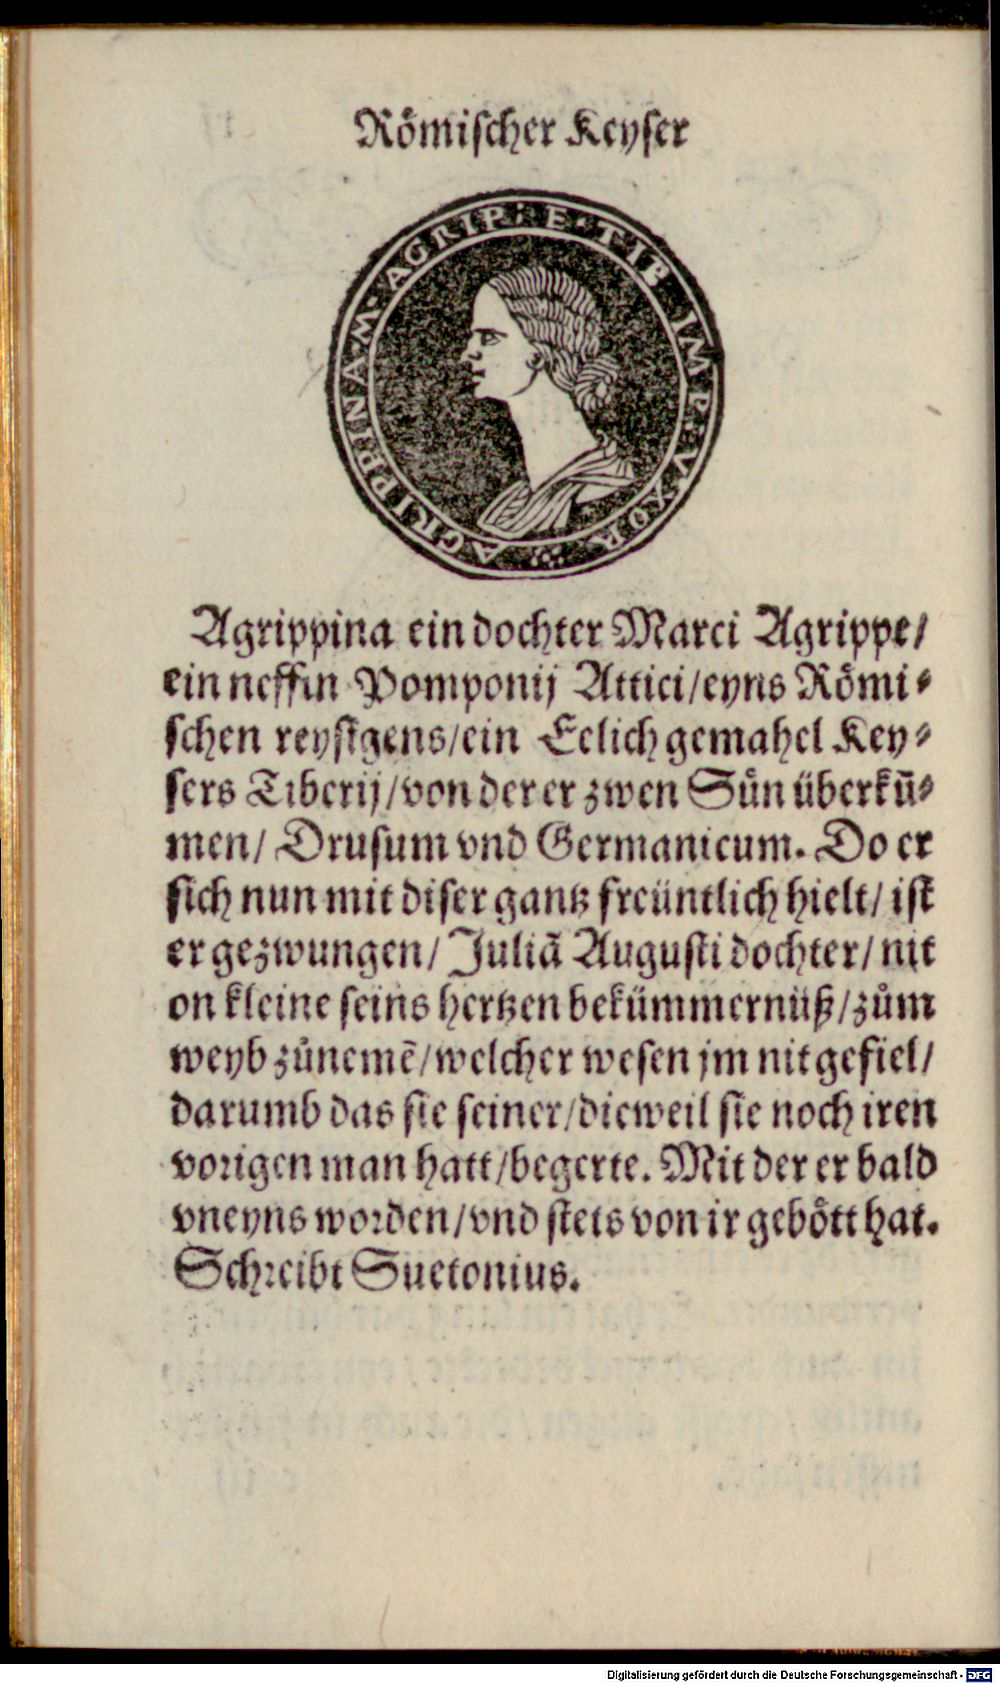 Römischer Keyser
AGRIPPINA·M·AGRIP: E·TIB IMP·VXOR
Agrippina ein dochter Marci Agrippe/
ein neffin Pomponij Attici/eyns Römi⸗
schen reysigens/ein Eelich gemahel Key⸗
sers Tiberij/von der er zwen Sün überkū⸗
men/ Drusum vnd Germanicum. Do er
sich nun mit diser gantz freüntlich hielt/ ist
er gezwungen/ Juliā Augusti dochter/ nit
on kleine seins hertzen bekümmernüß/zům
weyb zůnemē/welcher wesen jm nit gefiel/
darumb das sie seiner/dieweil sie noch iren
vorigen man hatt/begerte. Mit der er bald
vneyns worden/vnd stets von ir gebött hat.
Schreibt Suetonius.
Digitalisierung gefördert durch die Deutsche Forschungsgemeinschaft - DFG